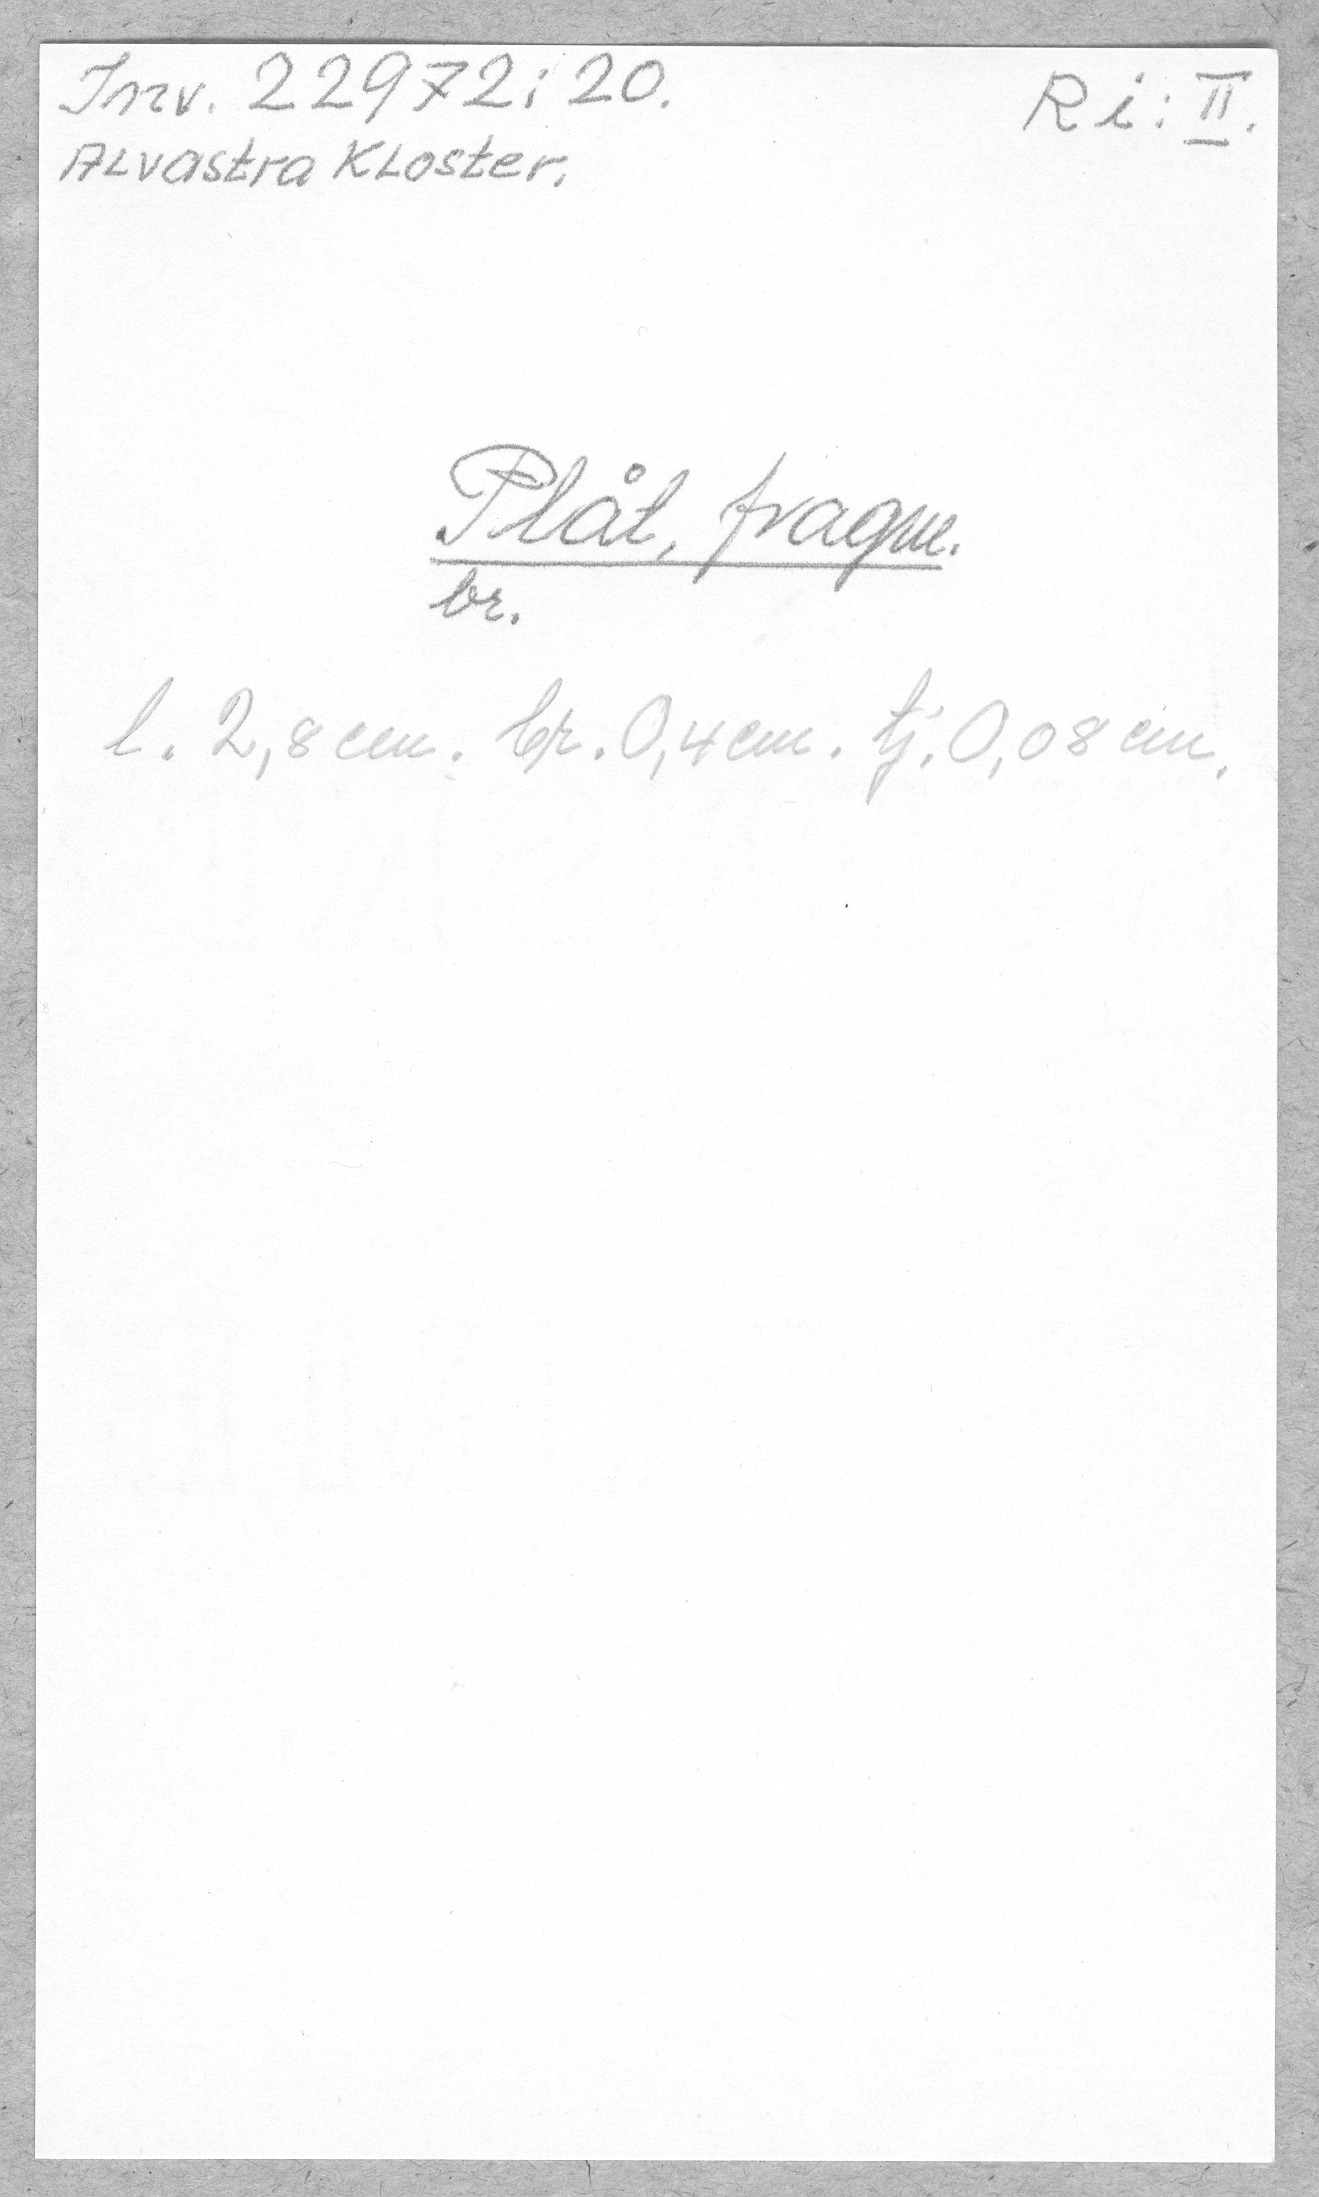 Inv. 22972:20.
Ri: II.
Alvastra Kloster.
Plåt, fragm.
br.
l. 2,8 cm. br. 0,4 cm. tj. 0,08 cm.